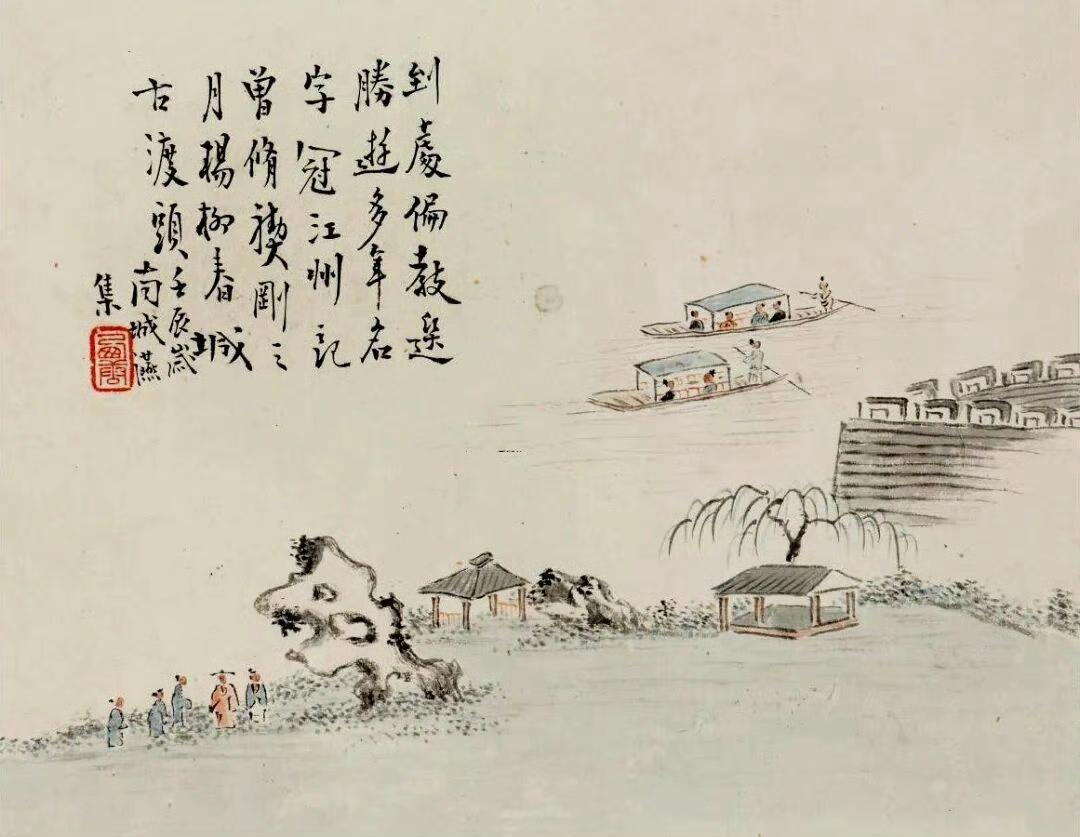 到處偏教選
勝遊多年名
字冠江州記
曾脩禊剛三
月楊柳春城
古渡頭
壬辰歲
南城讌
集